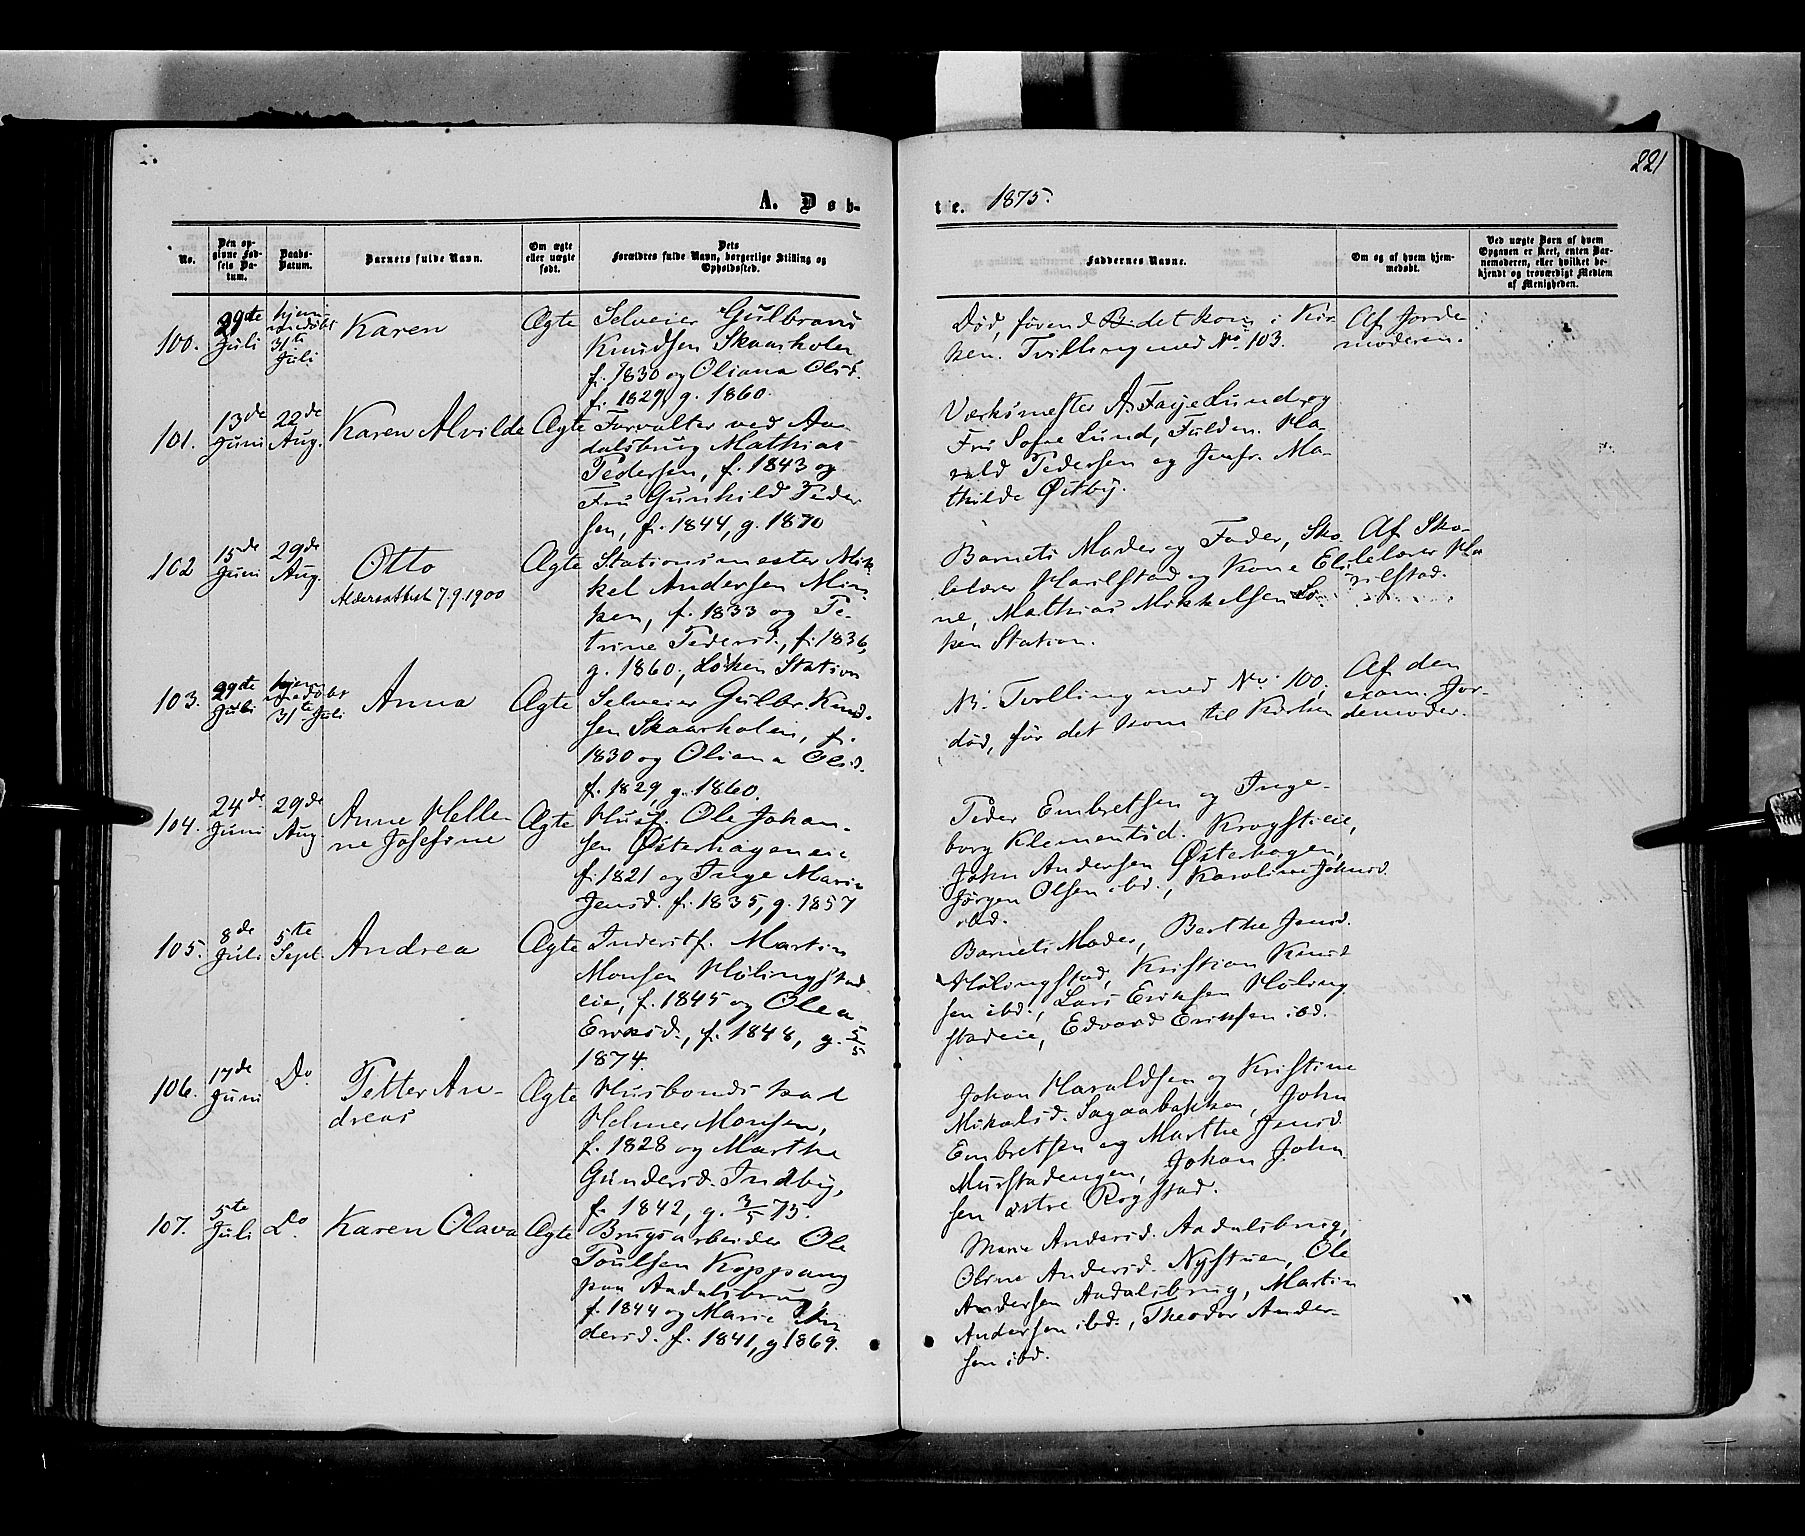 221
A. Døb-
te. 1875.
No.
Den op-
givne Fød-
sels Da-
tum.
Daabs-
Datum.
Barnets fulde Navn.
Om ægte
eller uægte
født.
Dets
Forældres fulde Navn, borgerlige Stilling og
Opholdssted.
Faddernes Navne.
Om og af hvem hjem-
medøbt.
Ved uægte Børn af hvem
Opgaven er skeet, enten Bar-
nemoderen, eller hvilket be-
kjendt og troværdigt Medlem
af Menigheden.
100.
29de
Juli
hjem
medøbt
31te
Juli
Karen
Ægte
Selveier Gulbrand
Knudsen Skaarholen
f. 1830 og Oliana Olsd.
f. 1829, g. 1860.
Død, førend det kom i Kir
ken. Tvilling med No 103.
Af Jorde
moderen.
101.
13de
Juni
22de
Aug.
Karen Alvilde
Ægte
Forvalter ved Aa-
dalsbrug Mathias
Pedersen, f. 1843 og
Fru Gunhild Peder
sen, f. 1844, g. 1870
Værksmester A. Faye Lund og
Fru Sofie Lund, Fuldm. Ha-
rald Pedersen og Jomfr. Ma-
thilde Østby.
102
15de
Juni
29de
Aug.
Otto
Aldersattest 7.9.1900
Ægte
Stationsmester Mik-
kel Andersen Min-
ken, f. 1833 og Pe-
trine Pedersd., f. 1836,
g. 1860, Løken Station
Barnets Moder og Fader, Sko-
lelærer Harilstad og Kone Eli-
ne, Mathias Mikkelsen Lø-
ken Station.
Af Sko-
lelærer Ha
rilstad.
103.
29de
Juli
hjem
medøbt
31te Juli
Anna
Ægte
Selveier Gulbr. Knud-
sen Skaarholen, f.
1830 og Oliana Olsd.
f. 1829, g. 1860.
NB. Tvilling med No. 100,
død, før det kom til Kirken
Af den
exam. Jor-
demoder.
104.
24de
Juni
29de
Aug
Anne Helle-
ne Josefine
Ægte
Husf. Ole Johan-
sen Østerhageneie
f. 1821 og Inge Marie
Jensd. f. 1835, g. 1857
Peder Embretsen og Inge-
borg Klementsd. Krogstieie,
John Andersen Østerhagen,
Jørgen Olsen ibd., Karoline Johnsd
ibd.
105.
8de
Juli
5te
Sept.
Andrea
Ægte
Inderstf. Martin
Monsen Hølingstad
eie, f. 1845 og Olea
Eriksd., f. 1848, g. 5/5
1874.
Barnets Moder, Berthe Jensd.
Hølingstad, Kristian Knud
sen ibd., Lars Eriksen Høling
stadeie, Edvard Eriksen ibd.
106.
17de
Juni
Do
Petter An-
dreas
Ægte
Husbonds kar
Helmer Monsen,
f. 1828 og Marthe
Gundersd. Indby,
f. 1842, g. 3/5 75.
Johan Haraldsen og Kristine
Mikalsd. Sagaabakken, John
Embretsen og Marthe Jensd
Murstadengen, Johan John
sen østre Rogstad.
107.
5te
Juli
Do
Karen Olava
Ægte
Brugsarbeider Ole
Poulsen Koppang
paa Aadalsbrug,
f. 1844 og Marie An
dersd. f. 1841, g. 1869.
Marie Andersd. Aadalsbrug,
Oline Andersd. Nystuen, Ole
Andersen Aadalsbrug, Martin
Andersen ibd., Theodor Ander-
sen ibd.